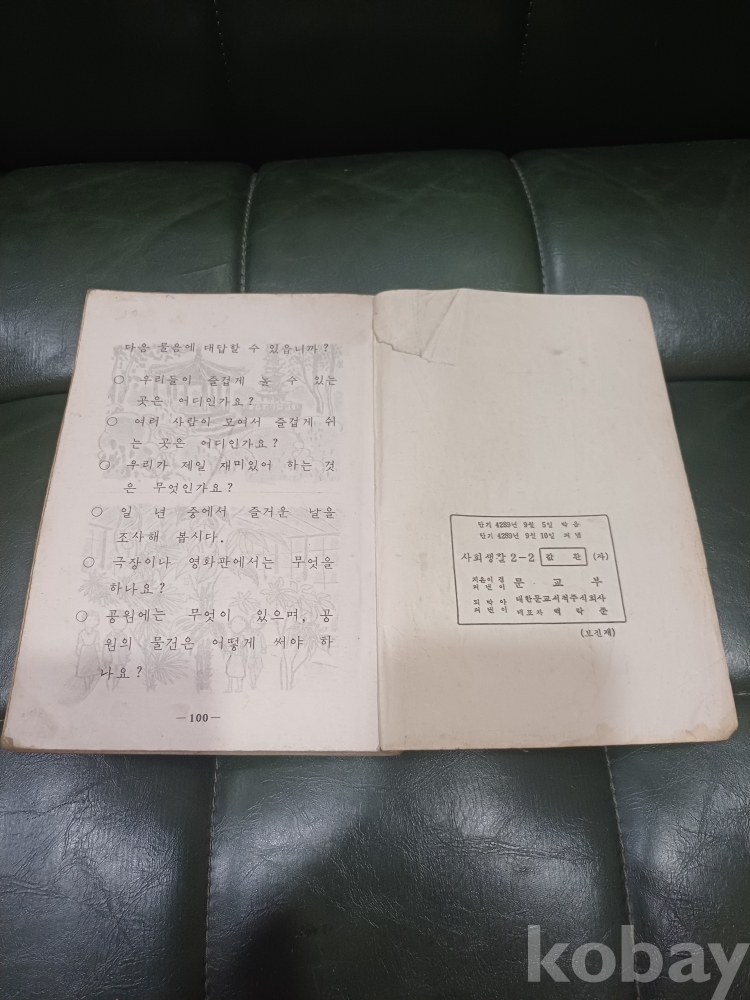 다음 물음에 대답할 수 있읍니까?
○ 우리들이 즐겁게 놀 수 있는
곳은 어디인가요?
○ 여러 사람이 모여서 즐겁게 쉬
는 곳은 어디인가요?
○ 우리가 제일 재미있어 하는 것
은 무엇인가요?
○ 일 년 중에서 즐거운 날을
조사해 봅시다.
○ 극장이나 영화관에서는 무엇을
하나요?
○ 공원에는 무엇이 있으며, 공
원의 물건은 어떻게 써야 하
나요?
—100—
단기 4289년 9월 5일 박음
단기 4289년 9월 10일 펴냄
사회생활 2-2 (자)
지은이 겸
펴낸이
문교부
박아
펴낸이
대한문교서적주식회사
대표자 백낙준
(보진재)
kobay